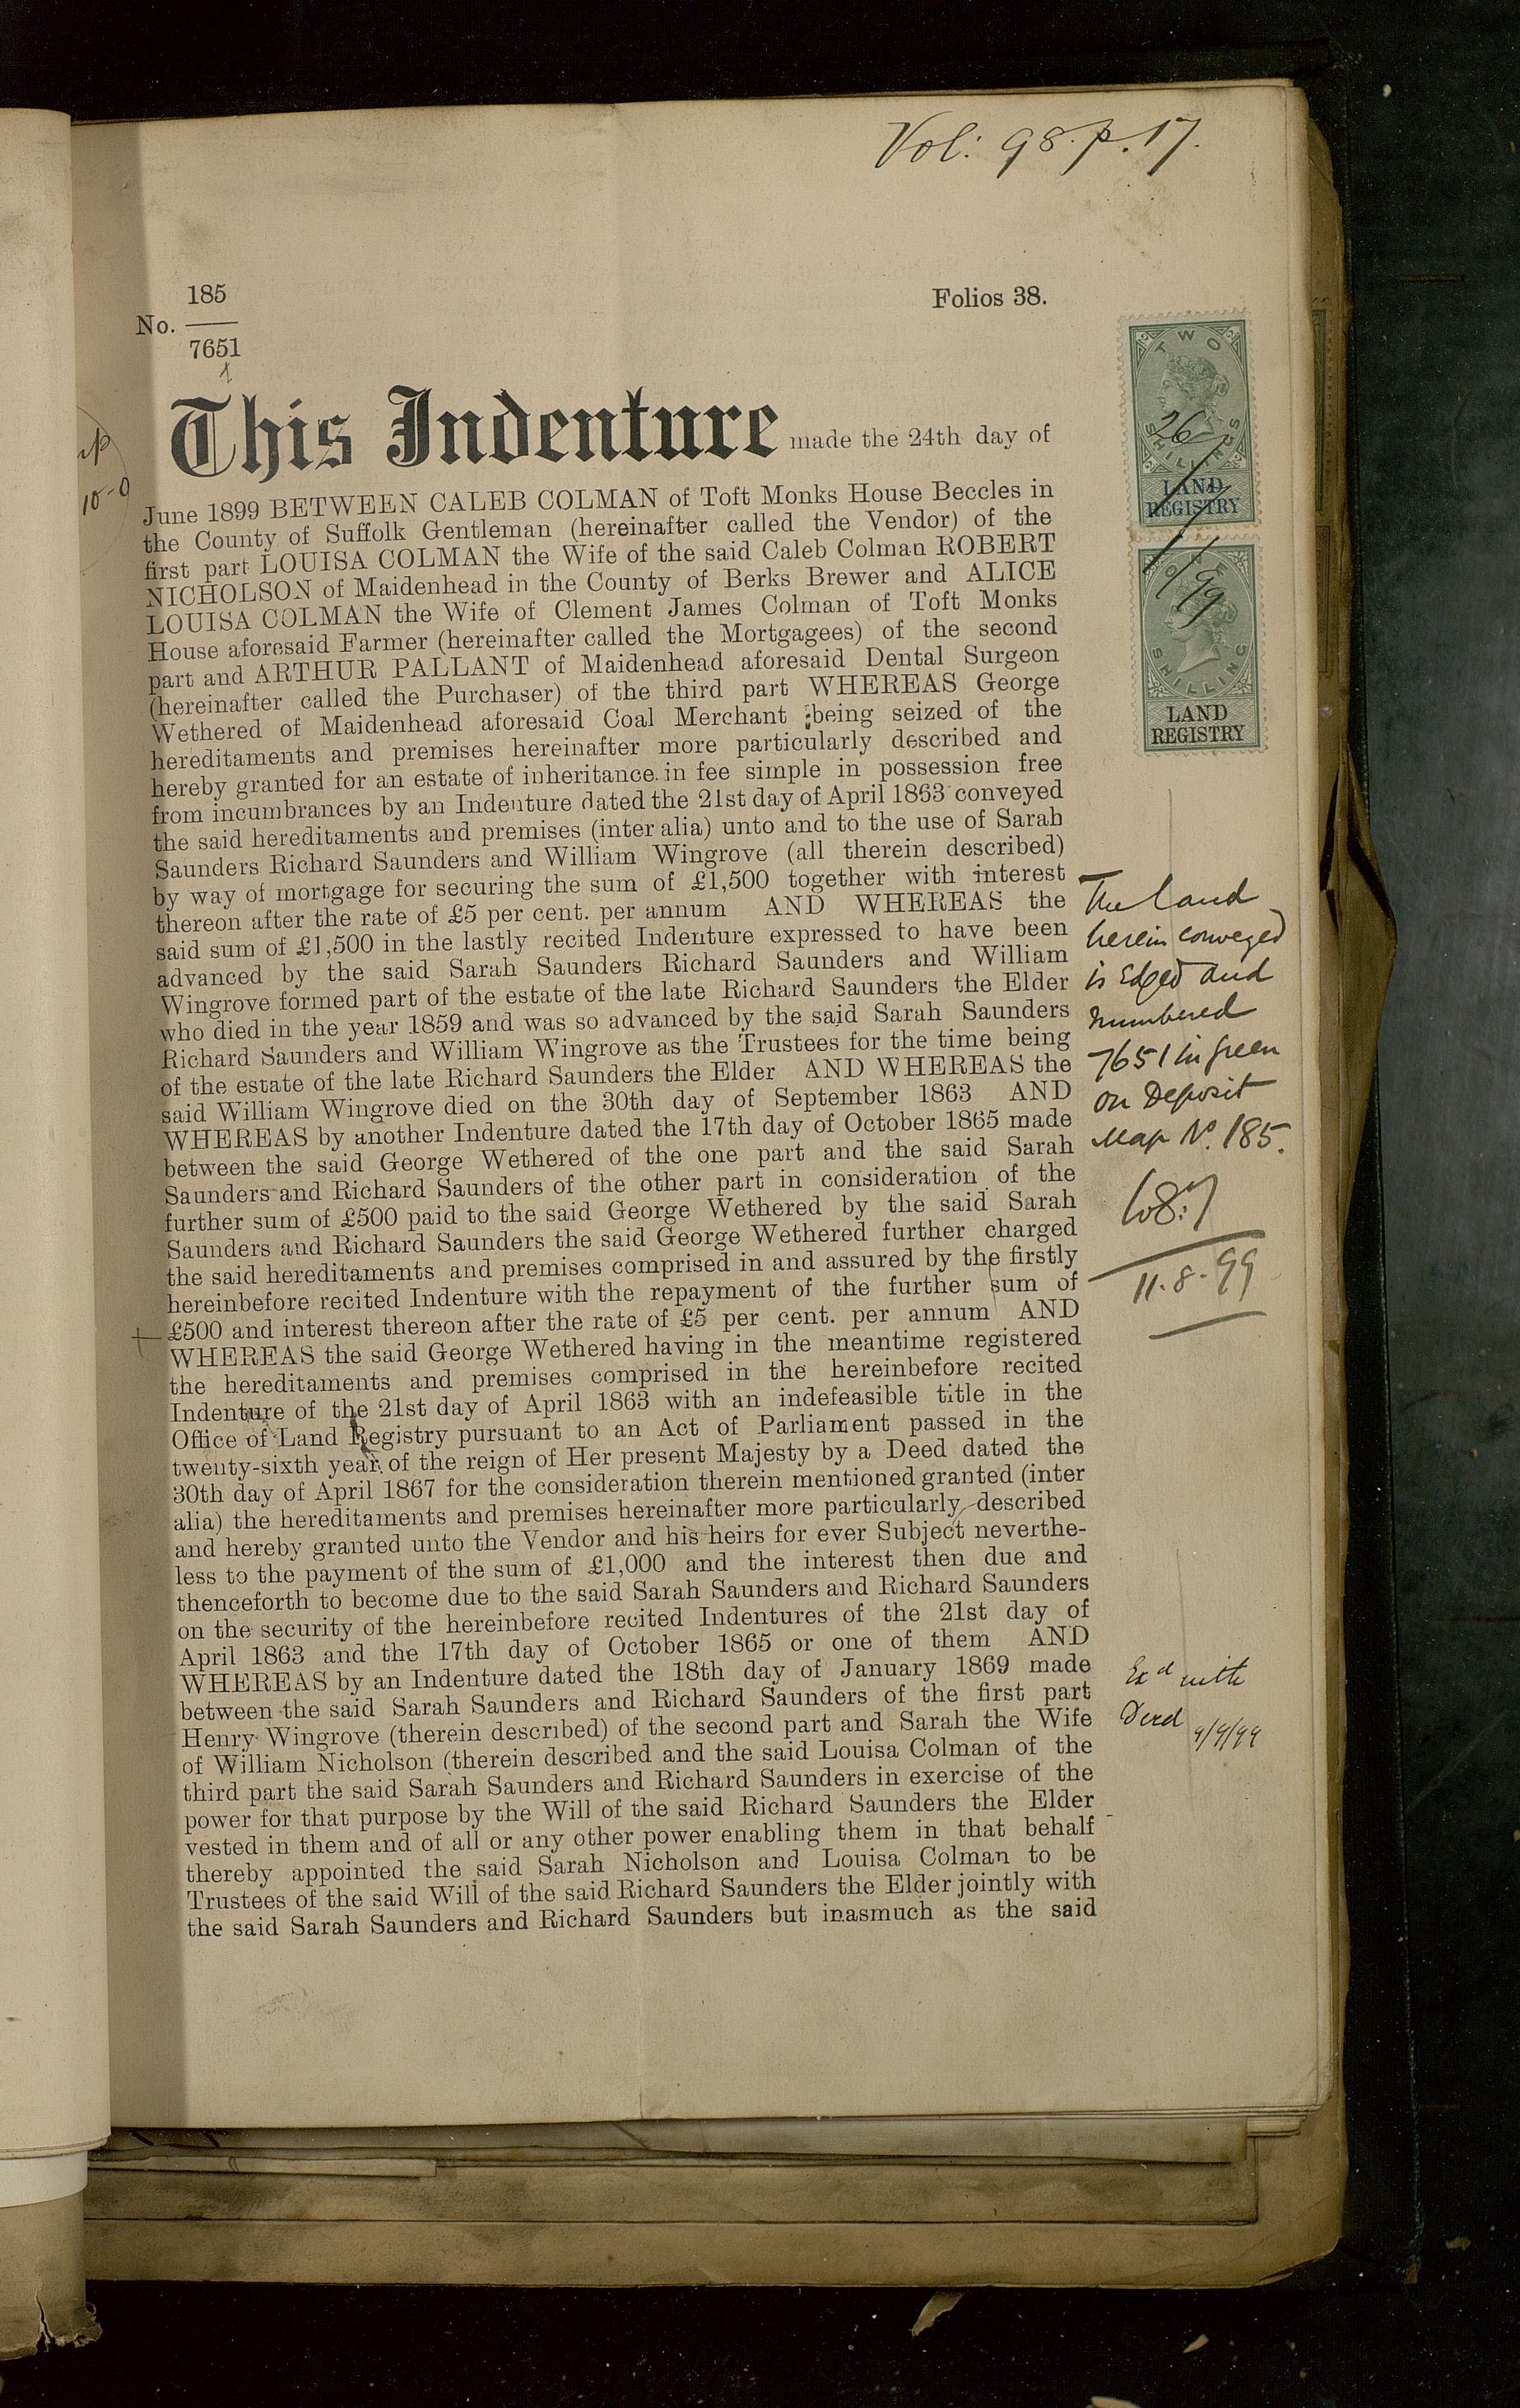 Vol: 98. p. 17.
185
No.
7651
1
Folios 38.
This Indenture made the 24th day of
June 1899 BETWEEN CALEB COLMAN of Toft Monks House Beccles in
the County of Suffolk Gentleman (hereinafter called the Vendor) of the
first part LOUISA COLMAN the Wife of the said Caleb Colman ROBERT
NICHOLSON of Maidenhead in the County of Berks Brewer and ALICE
LOUISA COLMAN the Wife of Clement James Colman of Toft Monks
House aforesaid Farmer (hereinafter called the Mortgagees) of the second
part and ARTHUR PALLANT of Maidenhead aforesaid Dental Surgeon
(hereinafter called the Purchaser) of the third part WHEREAS George
Wethered of Maidenhead aforesaid Coal Merchant being seized of the
hereditaments and premises hereinafter more particularly described and
hereby granted for an estate of inheritance in fee simple in possession free
from incumbrances by an Indenture dated the 21st day of April 1863 conveyed
the said hereditaments and premises (inter alia) unto and to the use of Sarah
Saunders Richard Saunders and William Wingrove (all therein described)
by way of mortgage for securing the sum of £1,500 together with interest
thereon after the rate of £5 per cent. per annum AND WHEREAS the
said sum of £1,500 in the lastly recited Indenture expressed to have been
advanced by the said Sarah Saunders Richard Saunders and William
Wingrove formed part of the estate of the late Richard Saunders the Elder
who died in the year 1859 and was so advanced by the said Sarah Saunders
Richard Saunders and William Wingrove as the Trustees for the time being
of the estate of the late Richard Saunders the Elder AND WHEREAS the
said William Wingrove died on the 30th day of September 1863 AND
WHEREAS by another Indenture dated the 17th day of October 1865 made
between the said George Wethered of the one part and the said Sarah
Saunders and Richard Saunders of the other part in consideration of the
further sum of £500 paid to the said George Wethered by the said Sarah
Saunders and Richard Saunders the said George Wethered further charged
the said hereditaments and premises comprised in and assured by the firstly
hereinbefore recited Indenture with the repayment of the further sum of
£500 and interest thereon after the rate of £5 per cent. per annum AND
WHEREAS the said George Wethered having in the meantime registered
the hereditaments and premises comprised in the hereinbefore recited
Indenture of the 21st day of April 1863 with an indefeasible title in the
Office of Land Registry pursuant to an Act of Parliament passed in the
twenty-sixth year of the reign of Her present Majesty by a Deed dated the
30th day of April 1867 for the consideration therein mentioned granted (inter
alia) the hereditaments and premises hereinafter more particularly described
and hereby granted unto the Vendor and his heirs for ever Subject neverthe-
less to the payment of the sum of £1,000 and the interest then due and
thenceforth to become due to the said Sarah Saunders and Richard Saunders
on the security of the hereinbefore recited Indentures of the 21st day of
April 1863 and the 17th day of October 1865 or one of them AND
WHEREAS by an Indenture dated the 18th day of January 1869 made
between the said Sarah Saunders and Richard Saunders of the first part
Henry Wingrove (therein described) of the second part and Sarah the Wife
of William Nicholson (therein described and the said Louisa Colman of the
third part the said Sarah Saunders and Richard Saunders in exercise of the
power for that purpose by the Will of the said Richard Saunders the Elder
vested in them and of all or any other power enabling them in that behalf
thereby appointed the said Sarah Nicholson and Louisa Colman to be
Trustees of the said Will of the said Richard Saunders the Elder jointly with
the said Sarah Saunders and Richard Saunders but inasmuch as the said
TWO
SHILLINGS
LAND
REGISTRY
26/7/99
ONE
SHILLING
LAND
REGISTRY
The land
herein conveyed
is Edged and
numbered
7651 in green
on Deposit
Map No. 185.
11.8.99
Exd with
Deed
10-0